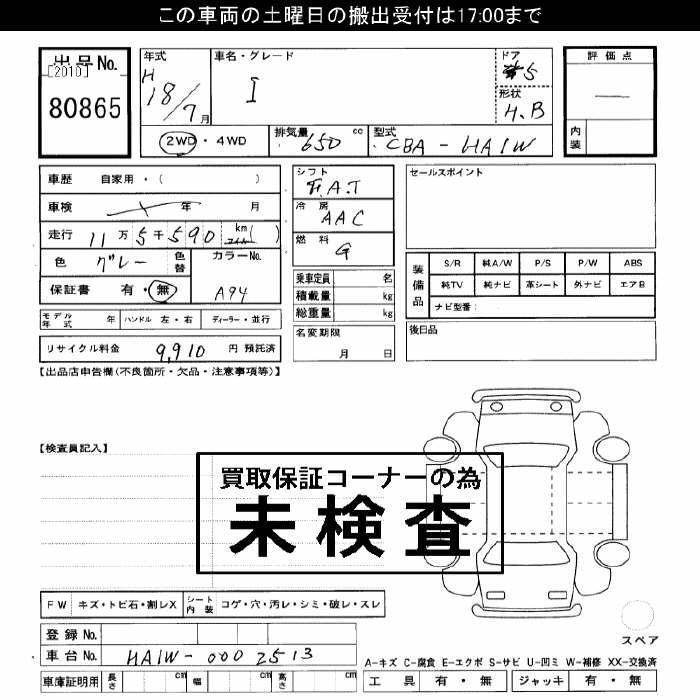 この車両の土曜日の搬出受付は17:00まで
出品No.
[2010]
80865
年式
H
18/7月
車名・グレード
I
ドア
5
形状
H.B
評価点
—
内装
2WD・4WD
排気量 650 cc
型式 CBA-HA1W
車歴 自家用・( )
車検 年 月
走行 11万5千590 km マイル( )
色 グレー 色替
カラーNo.
A94
保証書 有・無
シフト
F.A.T
冷房
AAC
燃料
G
乗車定員 名
積載量 kg
総重量 kg
名変期限
月 日
セールスポイント
装備品
S/R 純A/W P/S P/W ABS
純TV 純ナビ 革シート 外ナビ エアB
ナビ型番:
後日品
モデル年式 年 ハンドル 左・右 ディーラー・並行
リサイクル料金 9,910 円 預託済
【出品店申告欄(不良箇所・欠品・注意事項等)】
【検査員記入】
買取保証コーナーの為
未検査
FW キズ・トビ石・割レX シート内装 コゲ・穴・汚レ・シミ・破レ・スレ
スペア
登録No.
車台No. HA1W-0002513
A-キズ C-腐食 E-エクボ S-サビ U-凹ミ W-補修 XX-交換済
車庫証明用 長さ cm 幅 cm 高さ cm
工具 有・無 ジャッキ 有・無